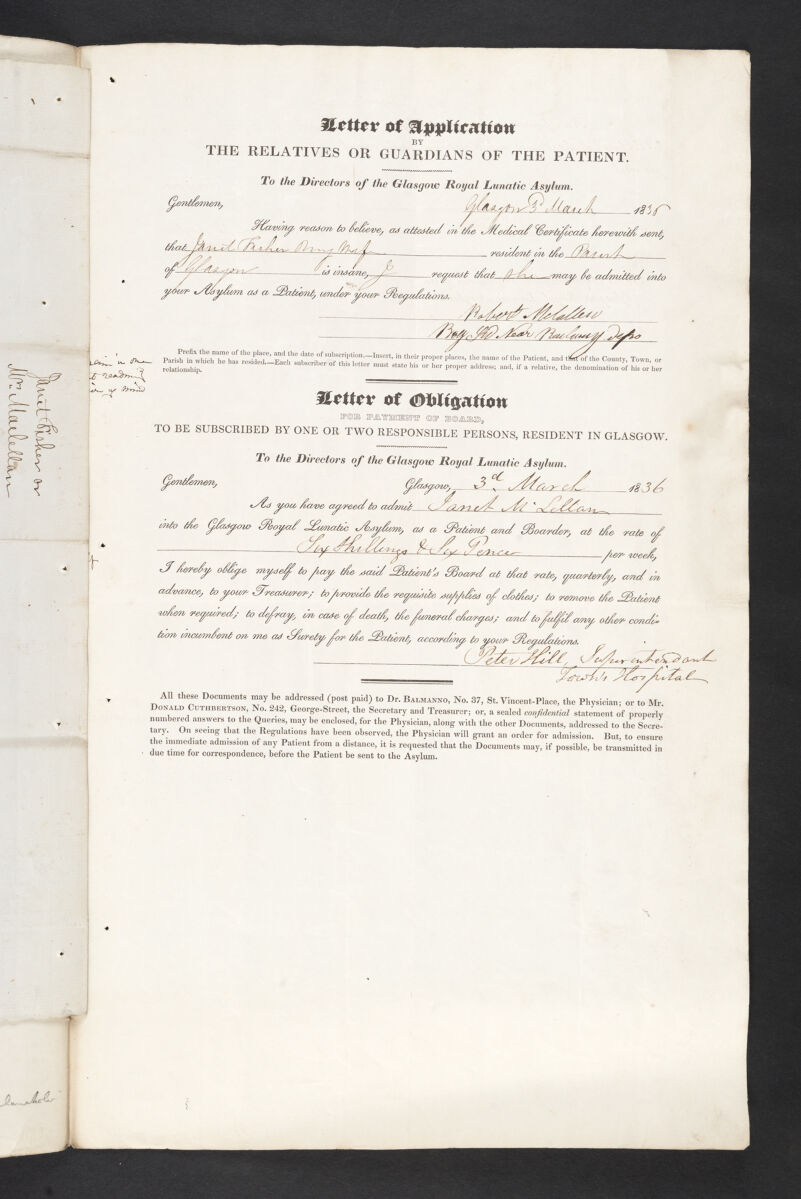 Letter of Application
BY
THE RELATIVES OR GUARDIANS OF THE PATIENT.
To the Directors of the Glasgow Royal Lunatic Asylum.
Gentlemen,
Glasgow 3d March 1836
Having reason to believe, as attested in the Medical Certificate herewith sent,
that Janet Fisher resident in the Parish
of Glasgow is insane, I request that she may be admitted into
your Asylum as a Patient, under your Regulations.
Robert
Near Railway
Prefix the name of the place, and the date of subscription.—Insert, in their proper places, the name of the Patient, and that of the County, Town, or
Parish in which he has resided.—Each subscriber of this letter must state his or her proper address; and, if a relative, the denomination of his or her
relationship.
Letter of Obligation
FOR PAYMENT OF BOARD,
TO BE SUBSCRIBED BY ONE OR TWO RESPONSIBLE PERSONS, RESIDENT IN GLASGOW.
To the Directors of the Glasgow Royal Lunatic Asylum.
Gentlemen,
Glasgow, 3d. March 1836
As you have agreed to admit Janet McLellan
into the Glasgow Royal Lunatic Asylum, as a Patient and Boarder, at the rate of
Six Shillings & Six Pence per week,
I hereby oblige myself to pay the said Patient's Board at that rate, quarterly, and in
advance, to your Treasurer; to provide the requisite supplies of clothes; to remove the Patient
when required; to defray, in case of death, the funeral charges; and to fulfil any other condi-
tion incumbent on me as Surety for the Patient, according to your Regulations.
Peter Hill, Superintendant
Town's Hospital
All these Documents may be addressed (post paid) to Dr. BALMANNO, No. 37, St. Vincent-Place, the Physician; or to Mr.
DONALD CUTHBERTSON, No. 242, George-Street, the Secretary and Treasurer; or, a sealed confidential statement of properly
numbered answers to the Queries, may be enclosed, for the Physician, along with the other Documents, addressed to the Secre-
tary. On seeing that the Regulations have been observed, the Physician will grant an order for admission. But, to ensure
the immediate admission of any Patient from a distance, it is requested that the Documents may, if possible, be transmitted in
due time for correspondence, before the Patient be sent to the Asylum.
Janet Fisher or
Mrs. Maclellan